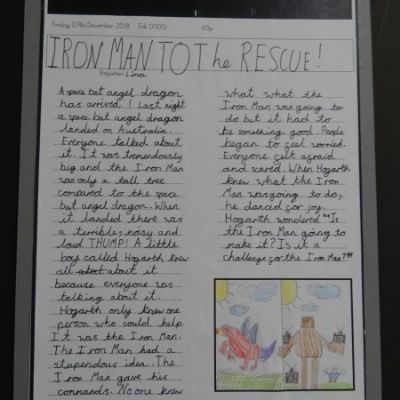 Friday 07th December 2018 Edi 00001 60p
IRON MAN TO The RESCUE!
Reporter: Lina
A space bat angel dragon
has arrived! Last night
a space bat angel dragon
landed on Australia.
Everyone talked about
it. It was tremendously
big and the Iron Man
was only a tall tree
compared to the space
bat angel dragon. When
it landed there was
a terrible, noisy and
loud THUMP! A little
boy called Hogarth knew
all about it
because everyone was
talking about it.
Hogarth only knew one
person who could help
It was the Iron Man.
The Iron Man had a
stupendous idea. The
Iron Man gave his
commands. No one knew
what what the
Iron Man was going to
do but it had to
be something good. People
began to feel worried.
Everyone felt afraid
and scared. When Hogarth
knew what the Iron
Man was going to do,
he danced for joy.
Hogarth wondered "Is
the Iron Man going to
make it? Is it a
challenge for the Iron Man?"